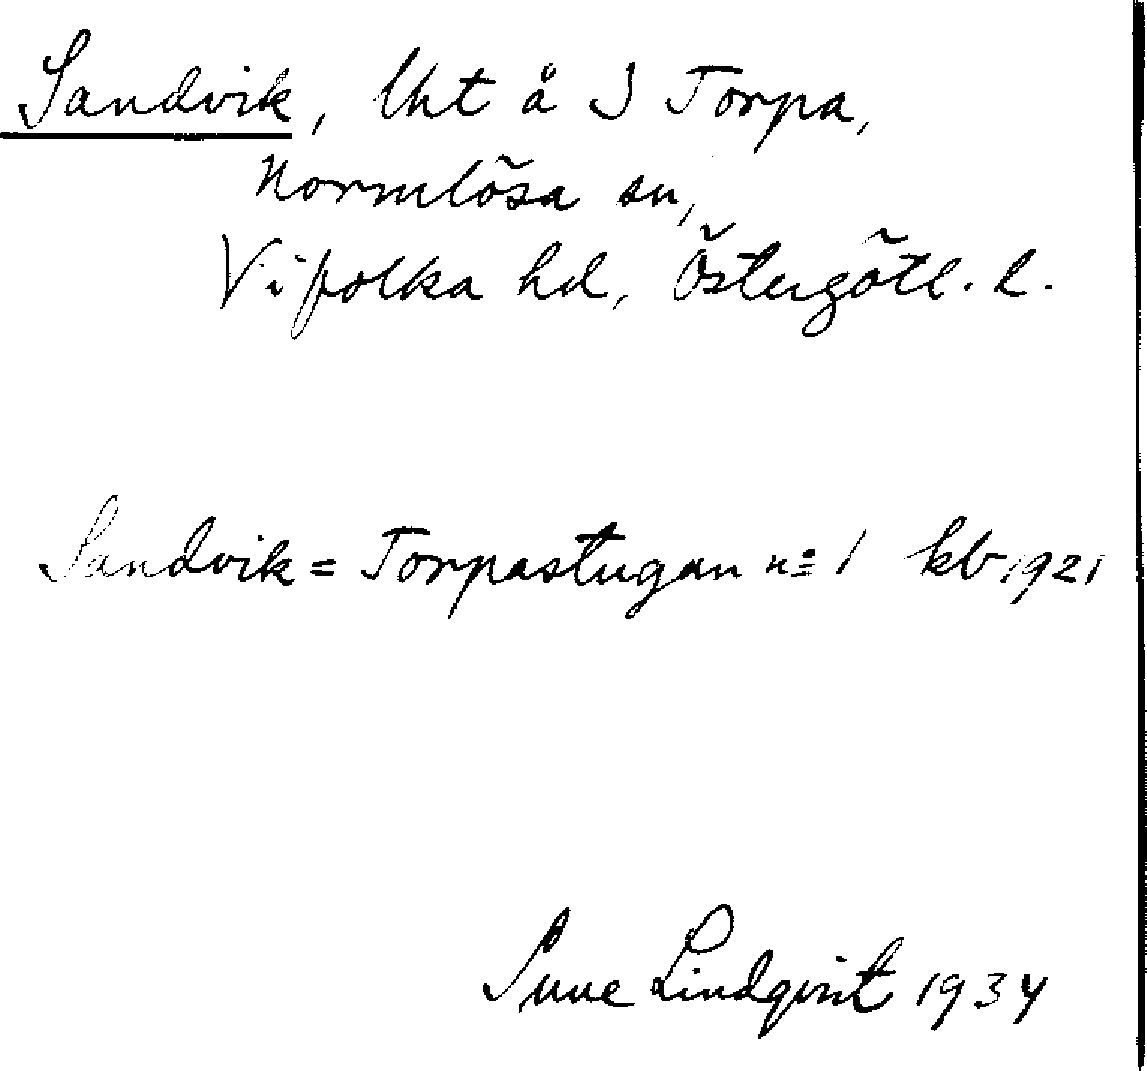 Sandvik, lht å S Torpa,
Normlösa sn,
Vifolka hd, Östergötl. l.
Sandvik = Torpastugan nº 1 kb 1921
Sune Lindqvist 1934